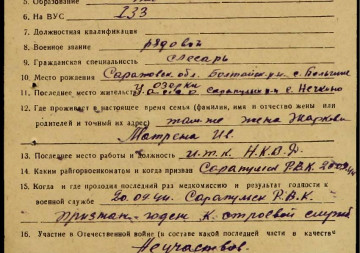 5. Образование
6. На ВУС 133
7. Должностная квалификация
8. Военное звание рядовой
9. Гражданская специальность слесарь
10. Место рождения Саратовск. обл. Балтайск. р-н с. Большие
Озерки
11. Последнее место жительства сарапульск. р-н с. Нечкино
12. Где проживает в настоящее время семья (фамилия, имя и отчество жены или
родителей и точный их адрес) там-же жена Жаркова
Матрена Ив.
13. Последнее место работы и должность И.Т.К. Н.К.В.Д.
14. Каким райгорвоенкоматом и когда призван Сарапульск Р.В.К.
15. Когда и где проходил последний раз медкомиссию и результат годности к
военной службе Сарапульск Р.В.К.
признан годен к строевой службе
16. Участие в Отечественной войне (в составе какой последней части и качеств
Не участвов.